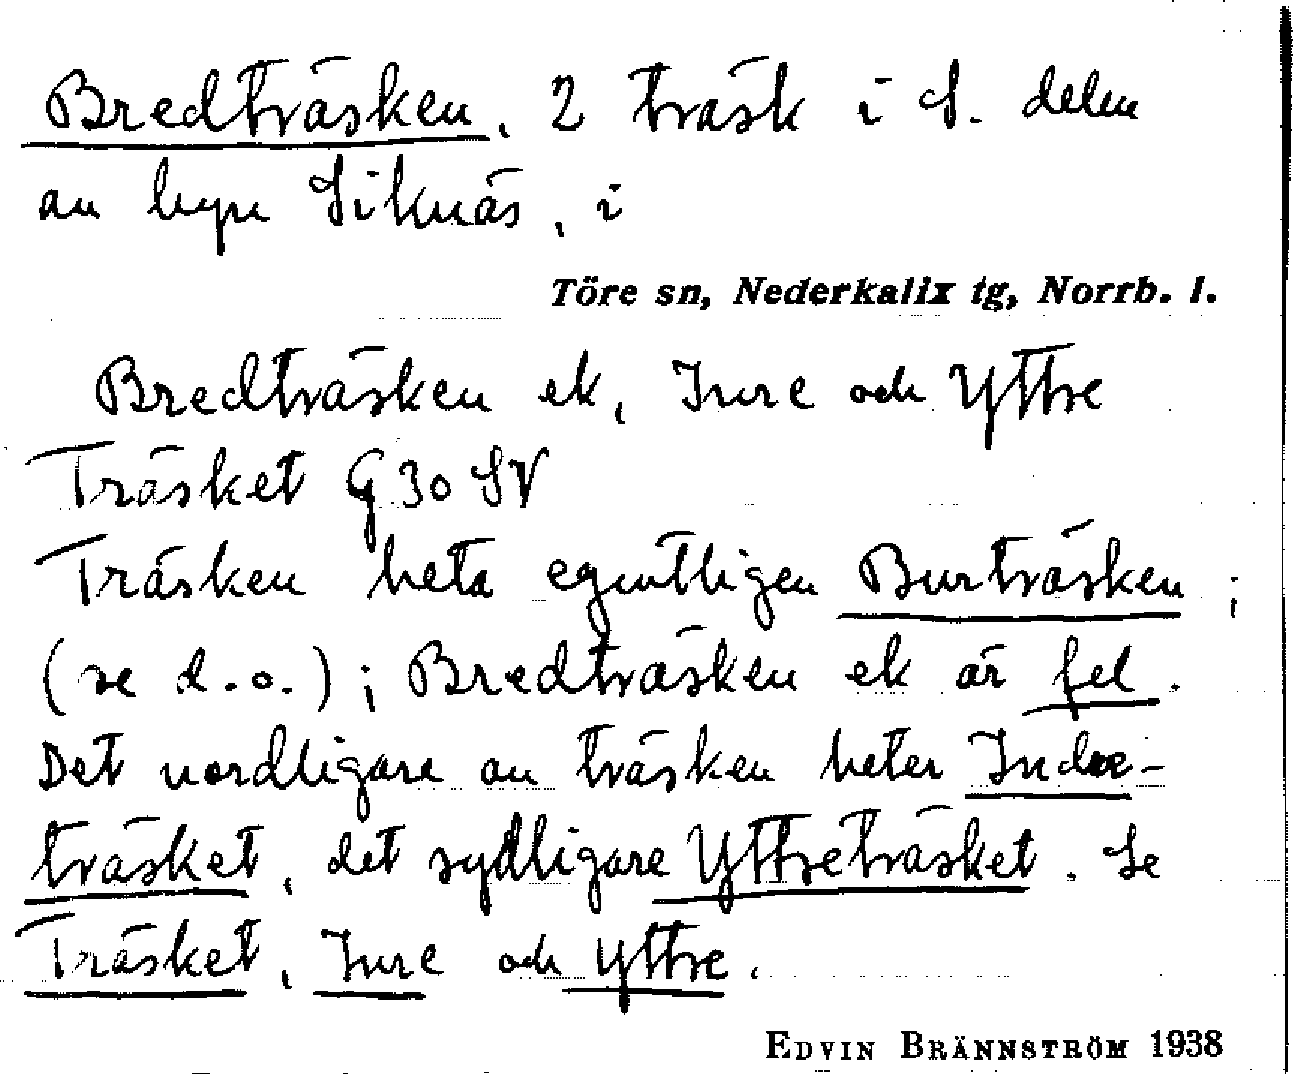 Bredträsken, 2 träsk i S. delen
av byn Siknäs, i
Töre sn, Nederkalix tg, Norrb. l.
Bredträsken ek, Inre och Yttre
Träsket G 30 SV
Träsken heta egentligen Burträsken ;
(se d.o.) ; Bredträsken ek är fel.
Det nordligare av träsken heter Indre-
träsket, det sydligare Yttreträsket. Se
Träsket, Inre och Yttre.
EDVIN BRÄNNSTRÖM 1938